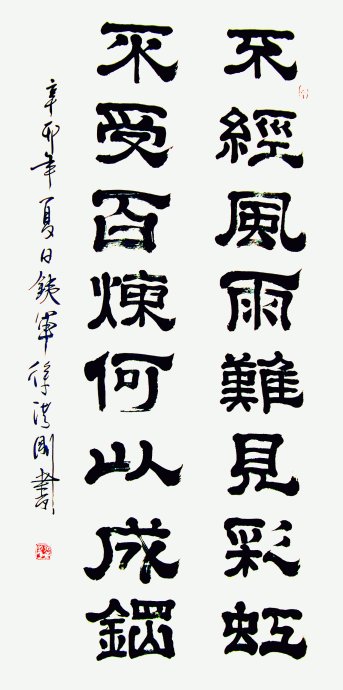 不經風雨難見彩虹
不受百煉何以成鋼
辛卯年夏日銕軍徐洪剛書